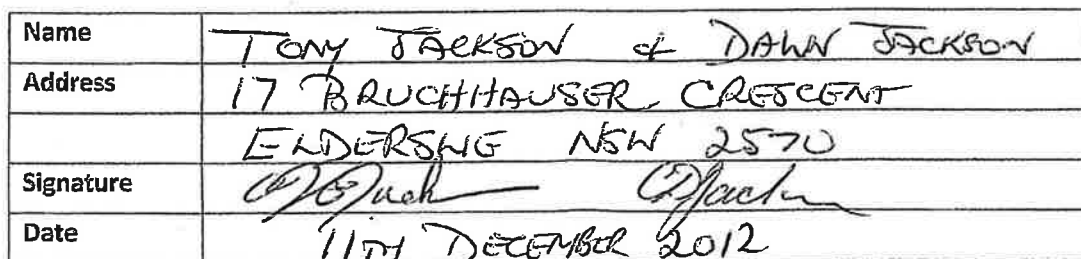 Name TONY JACKSON & DAWN JACKSON
Address 17 BRUCHHAUSER CRESCENT
ELDERSLIE NSW 2570
Signature
Date 11TH DECEMBER 2012